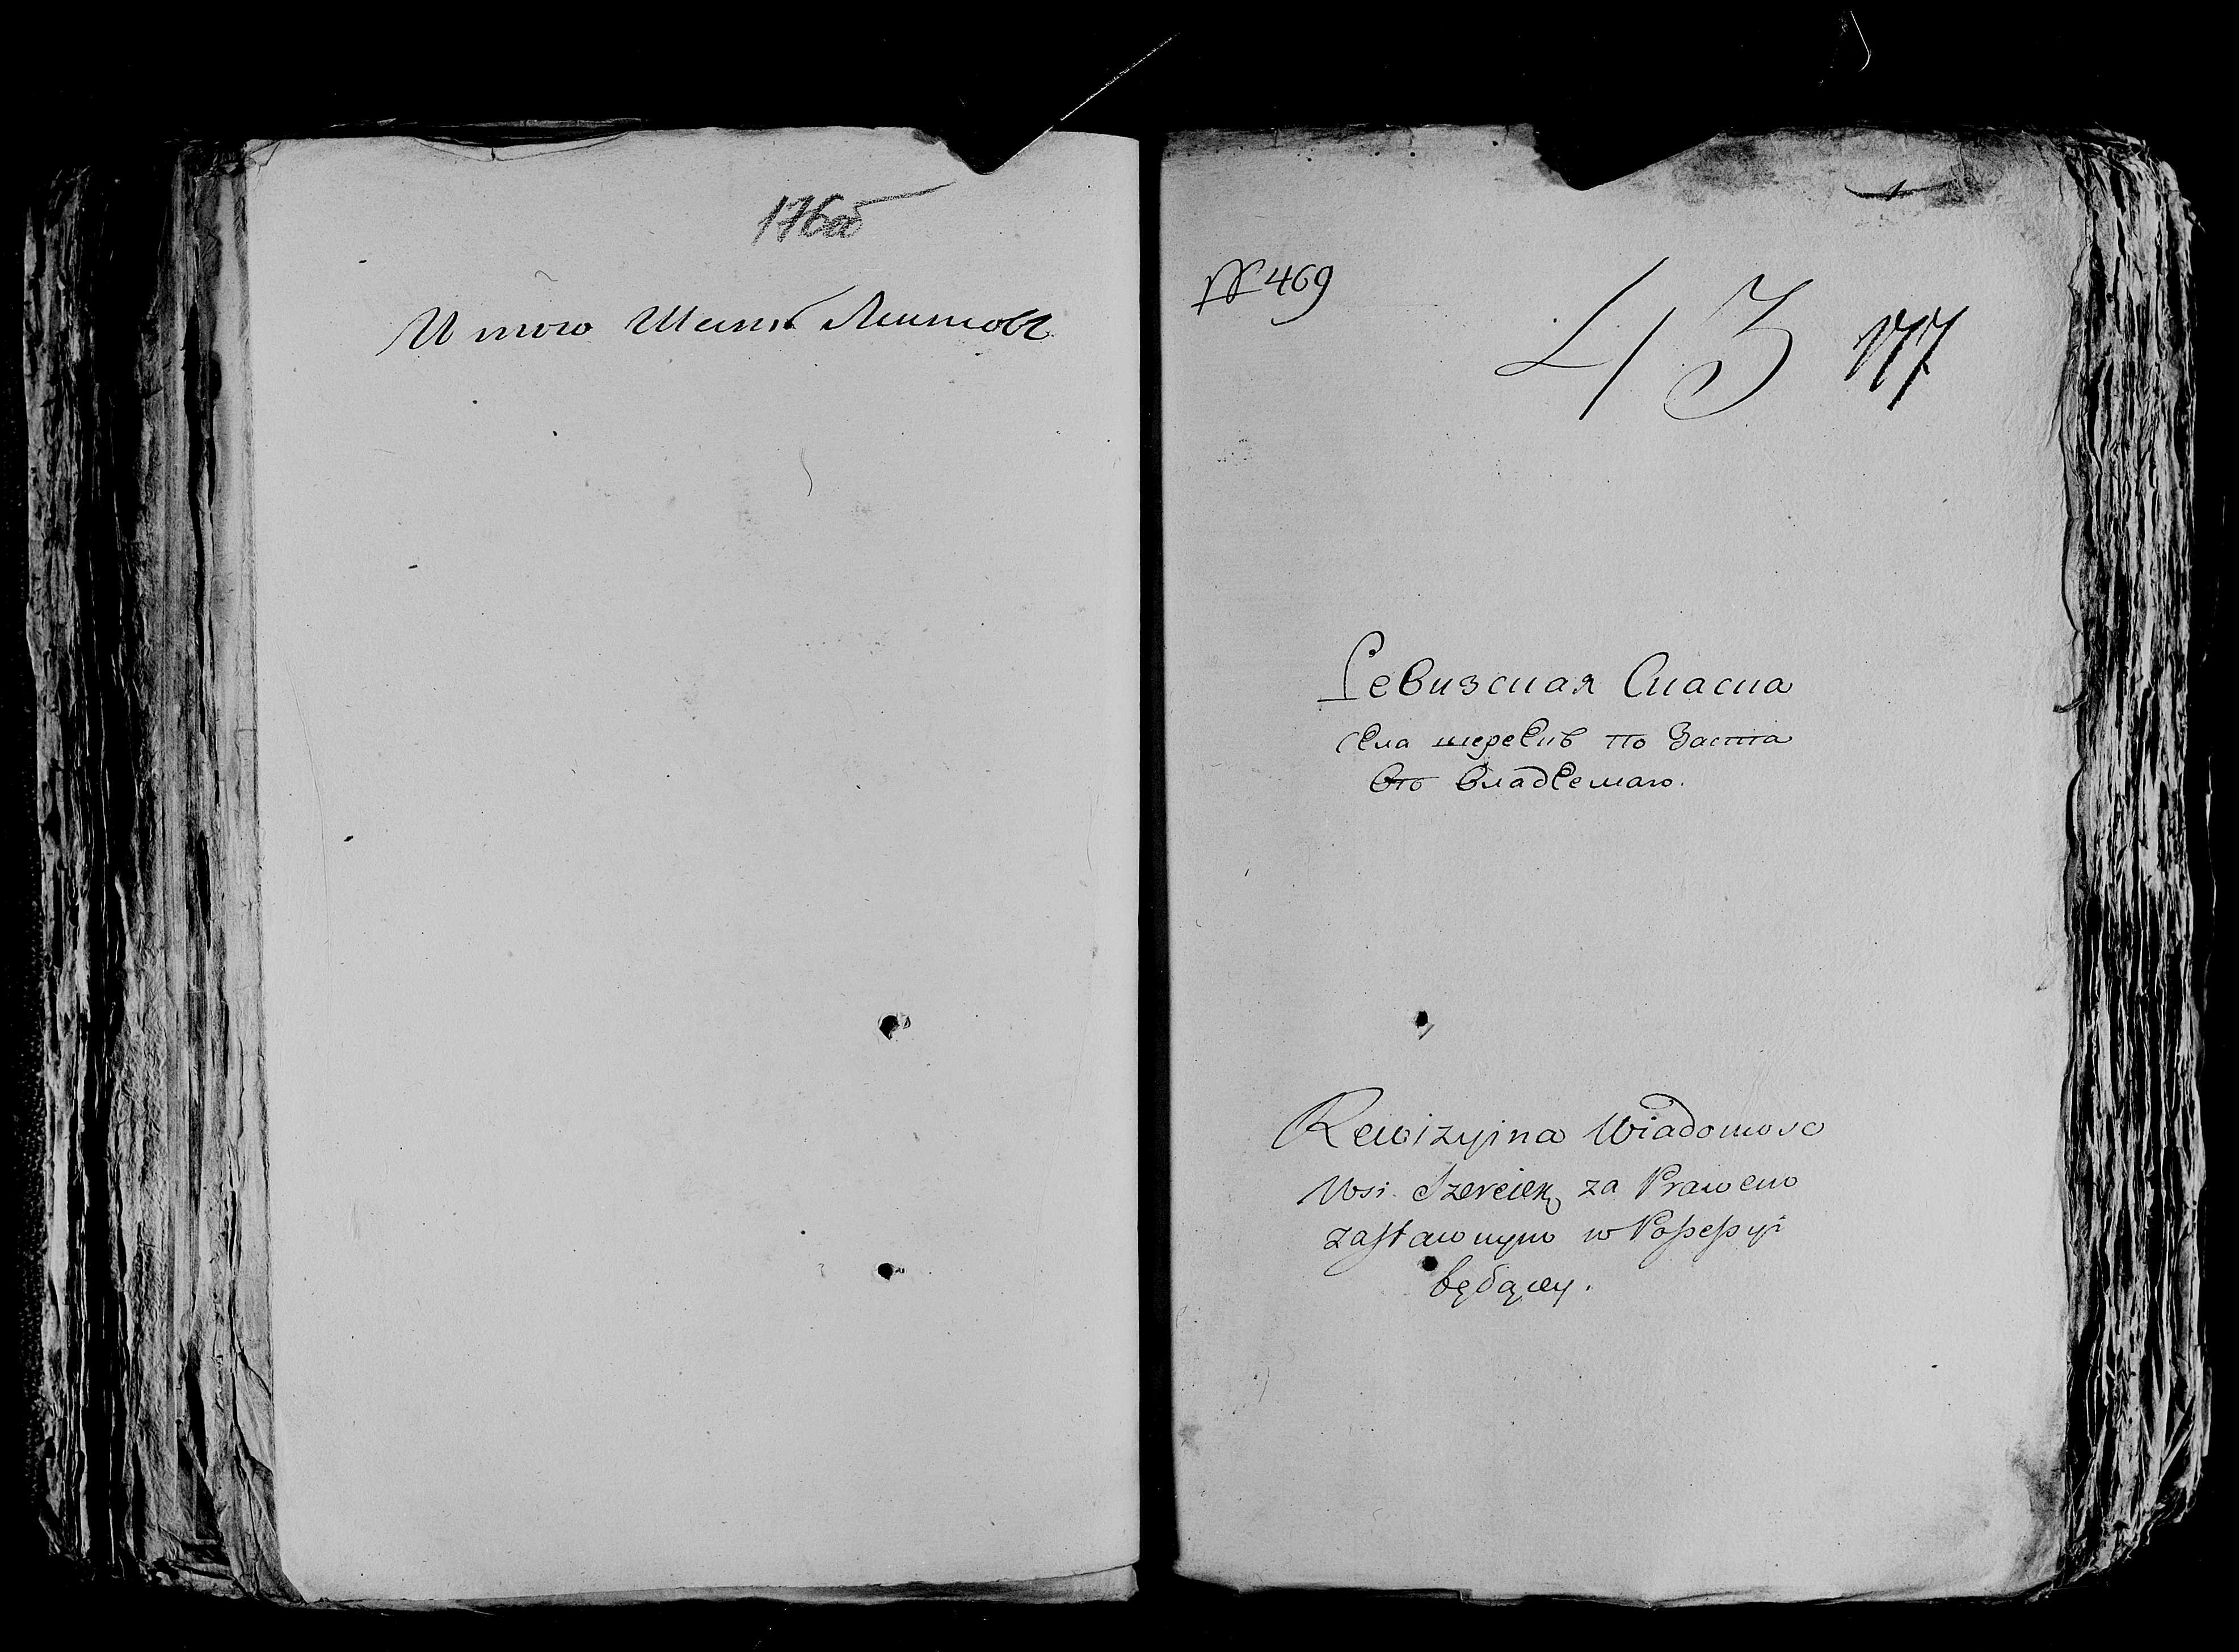 176об
Итого Шесть Листовъ
№ 469
43 177
Ревизская Сказка
села шерекъ по Заста
вѣ владѣемаго.
Rewizyina Wiadomosc
Wsi Szereiek za Prawem
zastawnym w Possessyi
będącey.